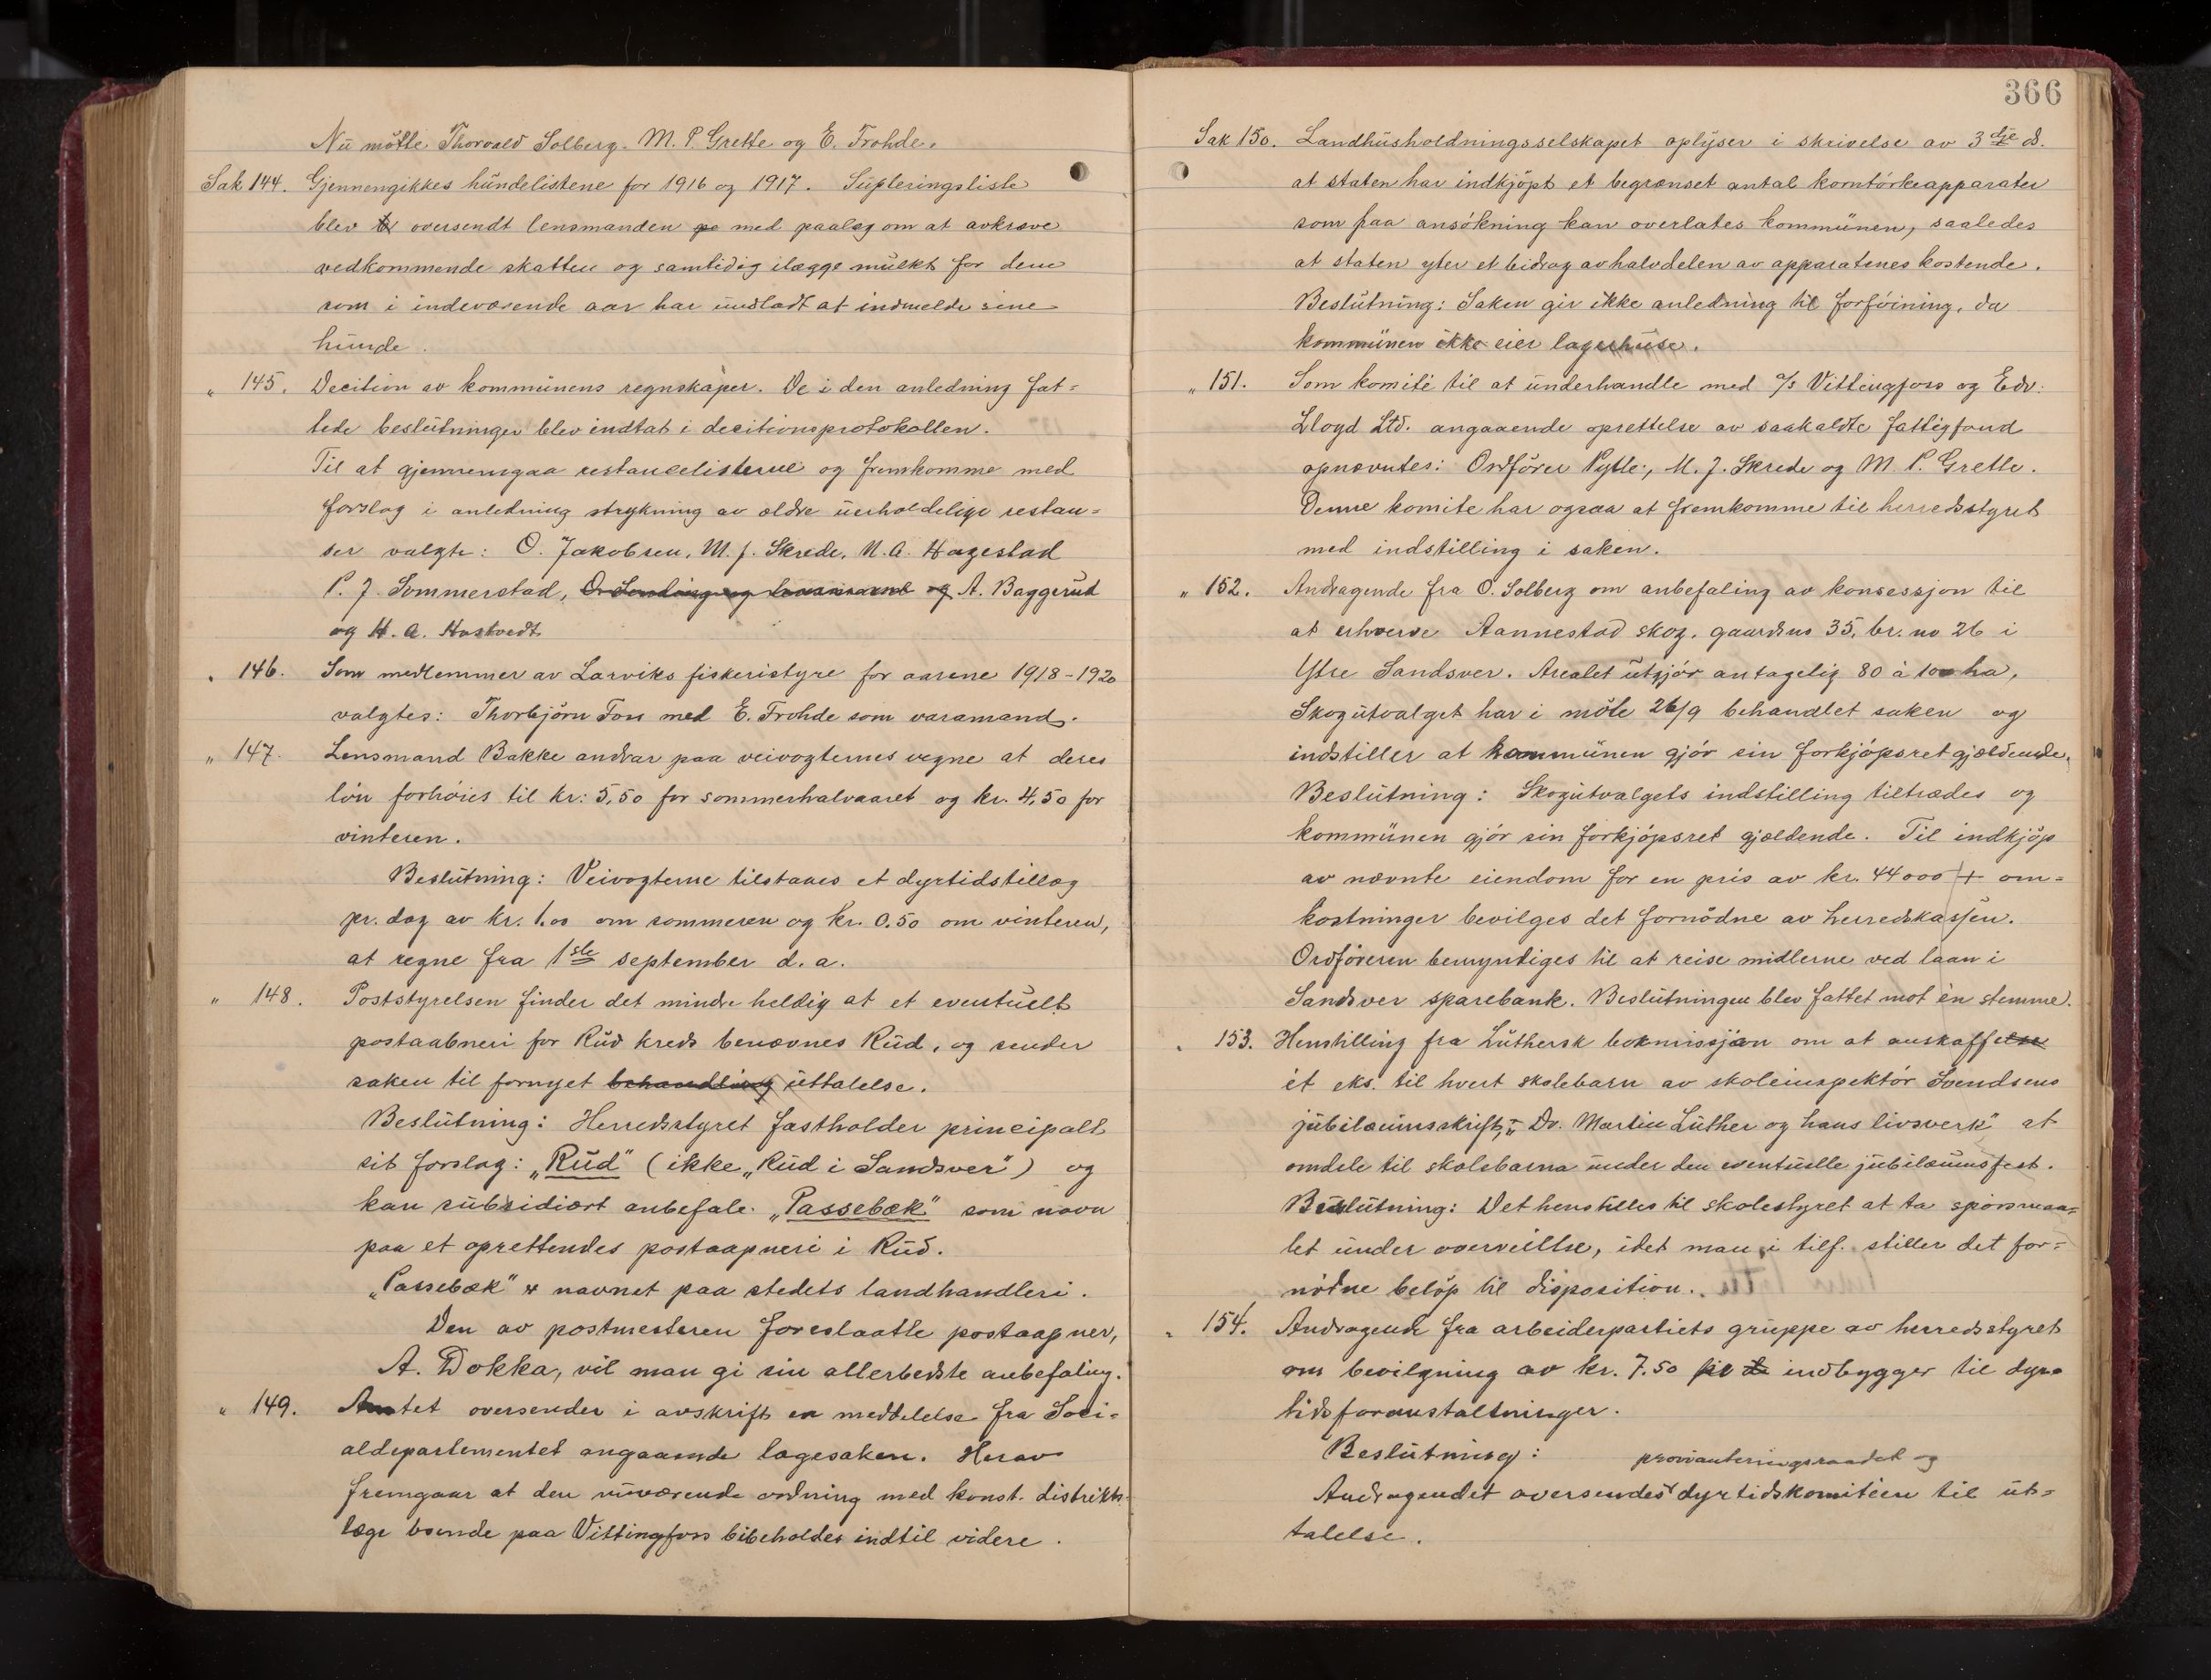 Nu møtte Thorvald Solberg. M. P. Grette og E. Frohde.
Sak 144. Gjennengikkes hundelistene for 1916 og 1917. Supleringsliste
blev oversendt lensmanden med paalæg om at avkræve
vedkommende skatten og samtidig ilægge mulkt for dem
som i indeværende aar har undladt at indmelde sine
hunde.
„ 145. Decition av kommunens regnskaper. De i den anledning fat=
tede beslutninger blev indtat i decitionsprotokollen.
Til at gjennemgaa restancelisterne og fremkomme med
forslag i anledning strykning av ældre uerholdelige restan=
ser valgte: O. Jakobsen, M. J. Skrede, N. A. Hagestad
P. J. Sommerstad, A. Baggerud
og H. A. Hostvedt
„ 146. Som medlemmer av Larviks fiskeristyre for aarene 1918-1920
valgtes: Thorbjørn Foss med E. Frohde som varamand.
„ 147. Lensmand Bakke andrar paa veivogternes vegne at deres
løn forhøies til kr: 5,50 for sommerhalvaaret og kr. 4,50 for
vinteren.
Beslutning: Veivogterne tilstaaes et dyrtidstillæg
pr. dag av kr. 1.00 om sommeren og kr. 0.50 om vinteren,
at regne fra 1ste september d. a.
„ 148. Poststyrelsen finder det mindre heldig at et eventuelt
postaabneri for Rud kreds benævnes Rud, og sender
saken til fornyet behandling uttalelse.
Beslutning: Herredsstyret fastholder principalt
sit forslag: „Rud" (ikke „Rud i Sandsver") og
kan subsidiært anbefale „Passebæk" som navn
paa et oprettendes postaapneri i Rud.
„Passebæk" er navnet paa stedets landhandleri.
Den av postmesteren foreslaatte postaapner,
A. Dokka, vil man gi sin allerbedste anbefaling.
„ 149. Amtet oversender i avskrift en meddelelse fra Soci=
aldepartementet angaaende lægesaken. Herav
fremgaar at den nuværende ordning med konst. distrikts-
læge boende paa Vittingfoss bibeholdes indtil videre.
366
Sak 150. Landhusholdningsselskapet oplyser i skrivelse av 3dje d.
at staten har indkjøpt et begrænset antal korntørkeapparater
som paa ansøkning kan overlates kommunen, saaledes
at staten yter et bidrag av halvdelen av apparatenes kostende.
Beslutning: Saken gir ikke anledning til forføining, da
kommunen ikke eier lagerhuse.
„ 151. Som komité til at underhandle med A/S Vittingfoss og Edv.
Lloyd Ltd. angaaende oprettelse av saakaldte fattigfond
opnævntes: Ordfører Pytte, M. J. Skrede og M. P. Grette.
Denne komite har ogsaa at fremkomme til herredsstyret
med indstilling i saken.
„ 152. Andragende fra O. Solberg om anbefaling av konsessjon til
at erhverve Aannestad skog, gaardsno 35, br. no 26 i
Ytre Sandsver. Arealet utgjør antagelig 80 à 100 ha.
Skogutvalget har i møte 26/9 behandlet saken og
indstiller at kommunen gjør sin forkjøpsret gjældende.
Beslutning: Skogutvalgets indstilling tiltrædes og
kommunen gjør sin forkjøpsret gjældende. Til indkjøp
av nævnte eiendom for en pris av kr. 44000 + om=
kostninger bevilges det fornødne av herredskassen.
Ordføreren bemyndiges til at reise midlerne ved laan i
Sandsver sparebank. Beslutningen blev fattet mot èn stemme.
„ 153. Henstilling fra Luthersk bokmissjon om at anskaffe
ét eks. til hvert skolebarn av skoleinspektør Svendsens
jubilæumsskrift, „Dr. Martin Luther og hans livsverk" at
omdele til skolebarna under den eventuelle jubilæumsfest.
Beslutning: Det henstilles til skolestyret at ta spørsmaa=
let under overveielse, idet man i tilf. stiller det for=
nødne beløp til disposition.
„ 154. Andragende fra arbeiderpartiets gruppe av herredsstyret
om bevilgning av kr. 7.50 pr indbygger til dyr=
tidsforanstaltninger.
Beslutning:
provianteringsraadet og
Andragendet oversendes dyrtidskomitéen til ut=
talelse.